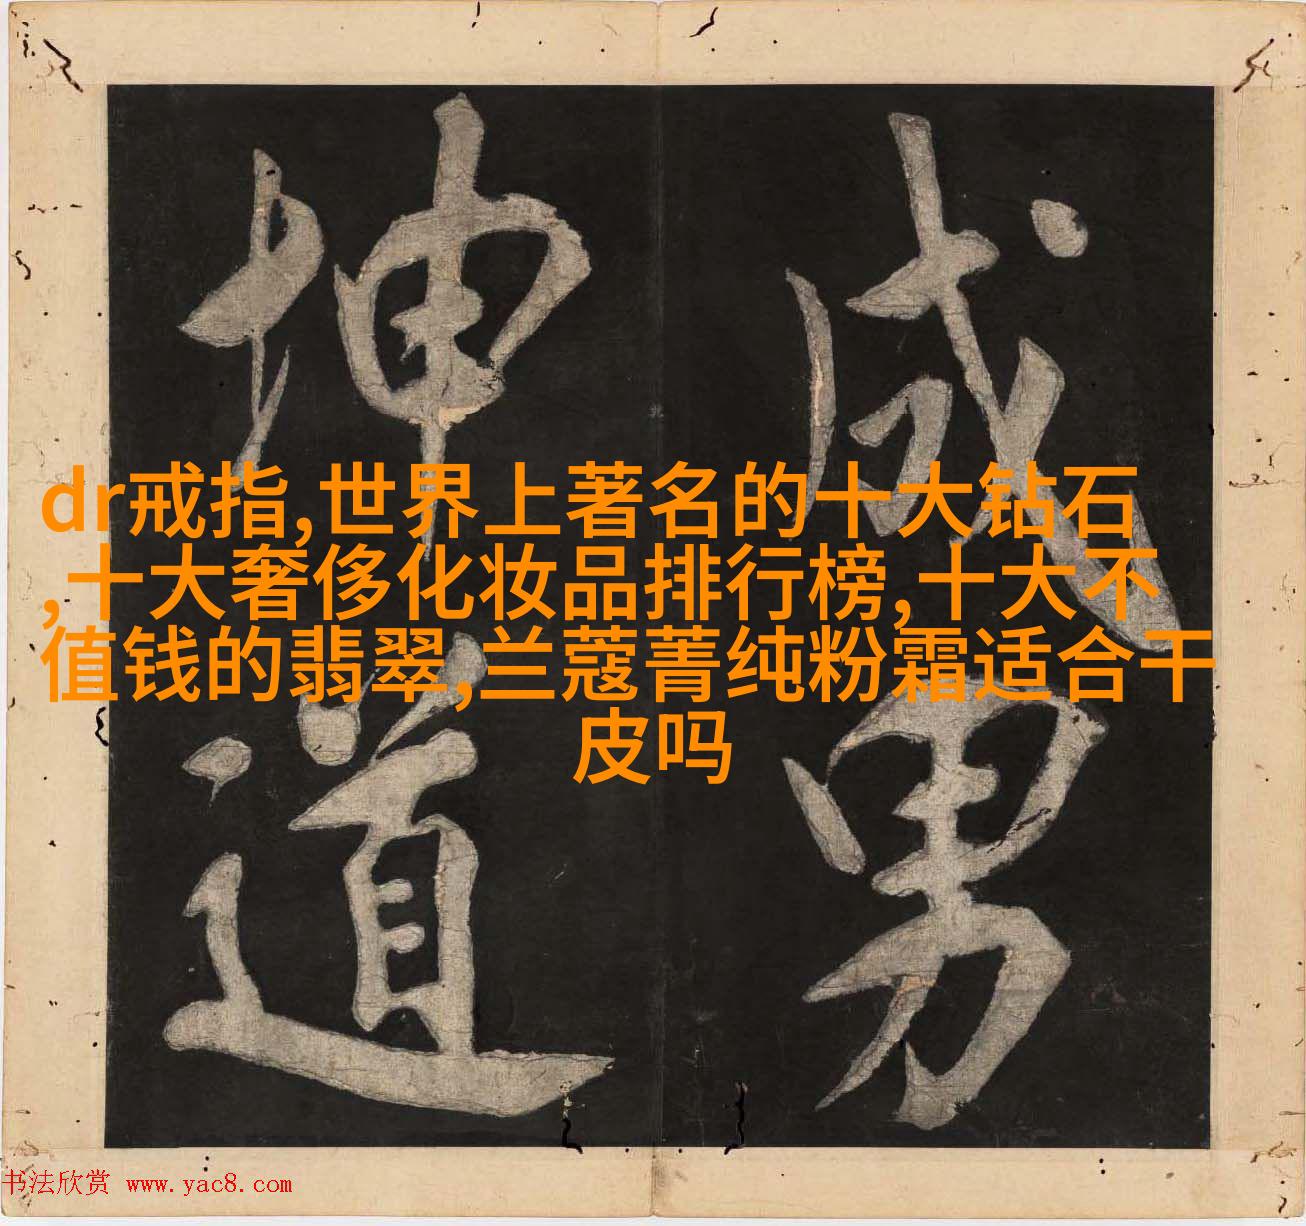 成男
坤道
dr戒指,世界上著名的十大钻石
,十大奢侈化妆品排行榜,十大不
值钱的翡翠,兰蔻菁纯粉霜适合干
皮吗
书法欣赏 www.yac8.com